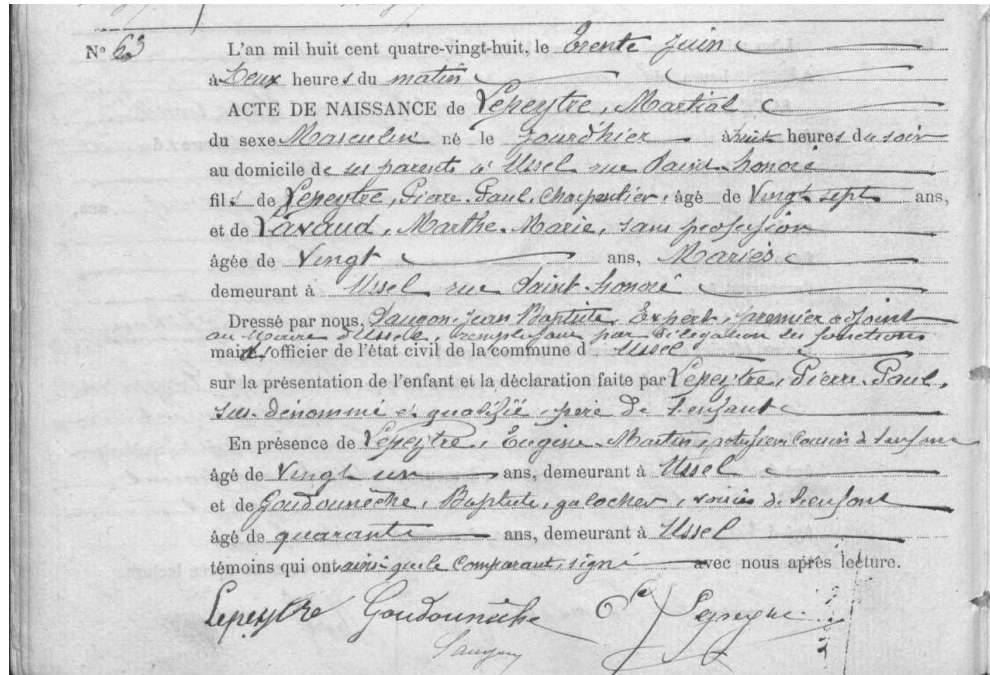 N° 63
L'an mil huit cent quatre-vingt-huit, le Trente Juin
à Deux heures du matin
ACTE DE NAISSANCE de Lepeytre, Martial
du sexe Masculin né le jourd'hier à huit heures du soir
au domicile de ses parents à Ussel rue Saint-honoré
fils de Lepeytre, Pierre-Paul, charpentier, âgé de Vingt sept ans,
et de Lavaud, Marthe-Marie, sans profession
âgée de Vingt ans, Mariés
demeurant à Ussel rue Saint-honoré
Dressé par nous, Saugon Jean Baptiste, Expert, premier adjoint
au Maire d'Ussel, remplissant par délégation les fonctions
officier de l'état civil de la commune d'Ussel
sur la présentation de l'enfant et la déclaration faite par Lepeytre, Pierre-Paul,
sus-dénommé et qualifié, père de l'enfant
En présence de Lepeytre, Eugène-Martin, cousin de l'enfant
âgé de Vingt un ans, demeurant à Ussel
et de Goudounèche, Baptiste, galocher, voisin de l'enfant
âgé de quarante ans, demeurant à Ussel
témoins qui ont, ainsi que le comparant, signé avec nous après lecture.
Lepeytre Goudounèche Lepeytre